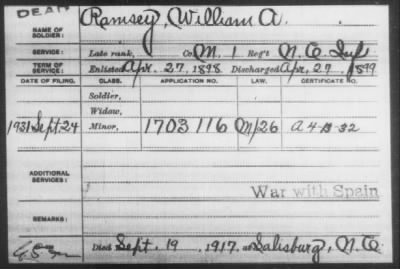 DEAD
NAME OF SOLDIER: Ramsey, William A.
SERVICE: Late rank, Co. M, 1 Reg't N.C. Inf
TERM OF SERVICE: Enlisted Apr. 27, 1898 Discharged Apr. 27, 1899
DATE OF FILING. CLASS. APPLICATION NO. LAW. CERTIFICATE NO.
Soldier,
Widow,
1931 Sept. 24 Minor, 1703116 M/26 A 4-13-32
ADDITIONAL SERVICES:
War with Spain
REMARKS:
Died Sept. 19, 1917, at Salisburg, N.C.